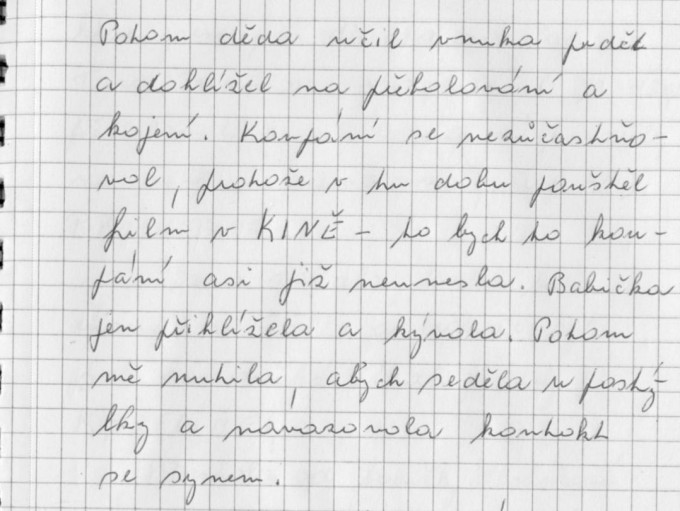 Potom děda učil vnuka prdět
a dohlížel na přebalování a
kojení. Koupání se nezúčastňo-
val, protože v tu dobu pouštěl
film v KINĚ - to bych to kou-
pání asi již neunesla. Babička
jen přihlížela a kývala. Potom
mě nutila, abych seděla u postý-
lky a navazovala kontakt
se synem.